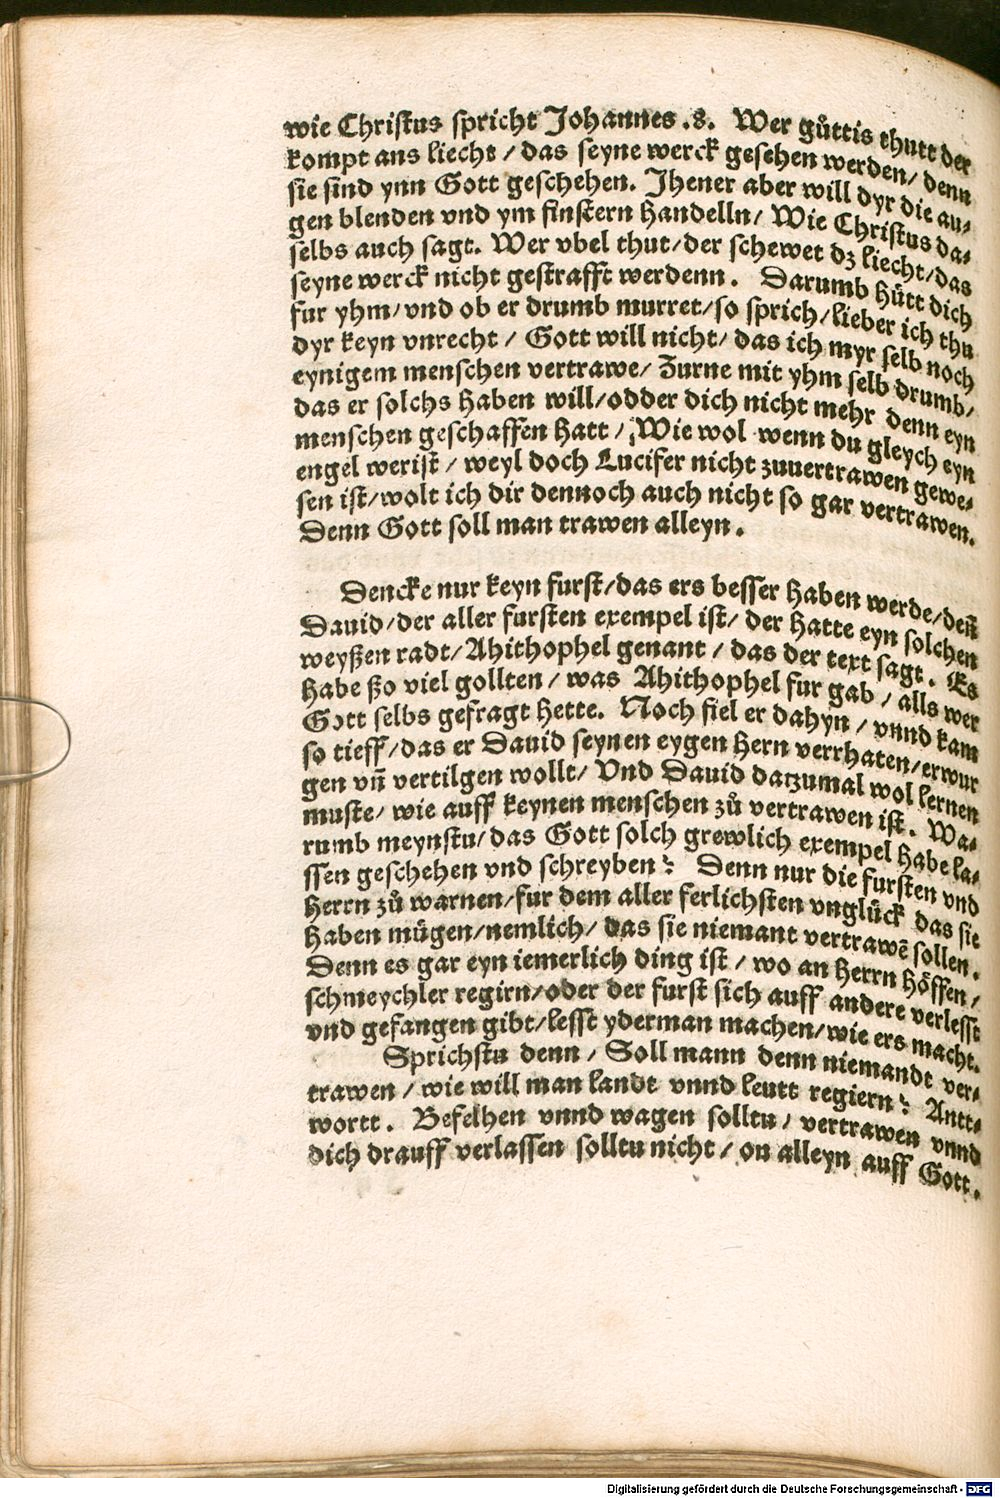 wie Christus spricht Johannes .8. Wer gůttis thutt der
kompt ans liecht / das seyne werck gesehen werden / denn
sie sind ynn Gott geschehen. Jhener aber will dyr die au⸗
gen blenden vnd ym finstern handelln / Wie Christus da⸗
selbs auch sagt. Wer vbel thut / der schewet dz liecht / das
seyne werck nicht gestrafft werdenn. Darumb hůtt dich
fur yhm / vnd ob er drumb murret / so sprich / lieber ich thu
dyr keyn vnrecht / Gott will nicht / das ich myr selb noch
eynigem menschen vertrawe / Zurne mit yhm selb drumb /
das er solchs haben will / odder dich nicht mehr denn eyn
menschen geschaffen hatt / Wie wol wenn du gleych eyn
engel werist / weyl doch Lucifer nicht zuuertrawen gewe⸗
sen ist / wolt ich dir dennoch auch nicht so gar vertrawen.
Denn Gott soll man trawen alleyn.
Dencke nur keyn furst / das ers besser haben werde / deñ
Dauid / der aller fursten exempel ist / der hatte eyn solchen
weyßen radt / Ahithophel genant / das der text sagt. Es
habe ßo viel gollten / was Ahithophel fur gab / alls wer
Gott selbs gefragt hette. Noch fiel er dahyn / vnnd kam
so tieff / das er Dauid seynen eygen hern verrhaten / erwur
gen vñ vertilgen wollt / Vnd Dauid datzumal wol lernen
muste / wie auff keynen menschen zů vertrawen ist. Wa⸗
rumb meynstu / das Gott solch grewlich exempel habe la⸗
ssen geschehen vnd schreyben? Denn nur die fursten vnd
herrn zů warnen / fur dem aller ferlichsten vnglůck das sie
haben můgen / nemlich / das sie niemant vertrawē sollen.
Denn es gar eyn iemerlich ding ist / wo an herrn hőffen /
schmeychler regirn / oder der furst sich auff andere verlesst
vnd gefangen gibt / lesst yderman machen / wie ers macht.
Sprichstu denn / Soll mann denn niemandt ver⸗
trawen / wie will man landt vnnd leutt regiern? Antt⸗
wortt. Befelhen vnnd wagen solltu / vertrawen vnnd
dich drauff verlassen solltu nicht / on alleyn auff Gott.
Digitalisierung gefördert durch die Deutsche Forschungsgemeinschaft - DFG